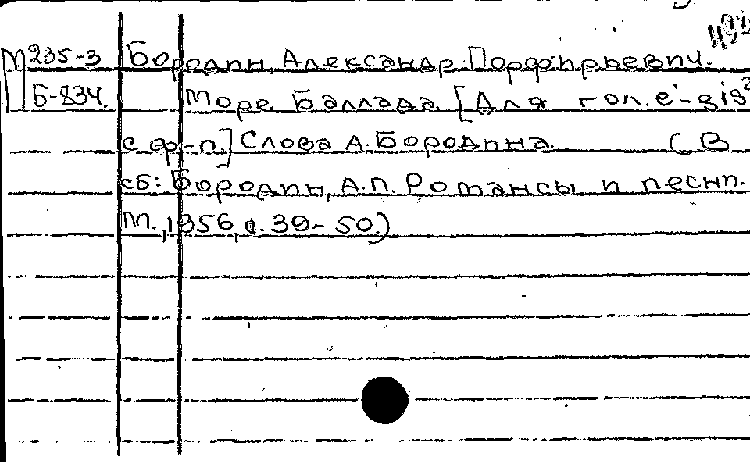 М 235-3 Бородин, Александр Порфирьевич.
Б-834. Море. Баллада. [Для гол. e'-gis²
с ф-п.] Слова А. Бородина. (В
сб: Бородин, А.П. Романсы и песни.
М., 1956, с. 39-50.)